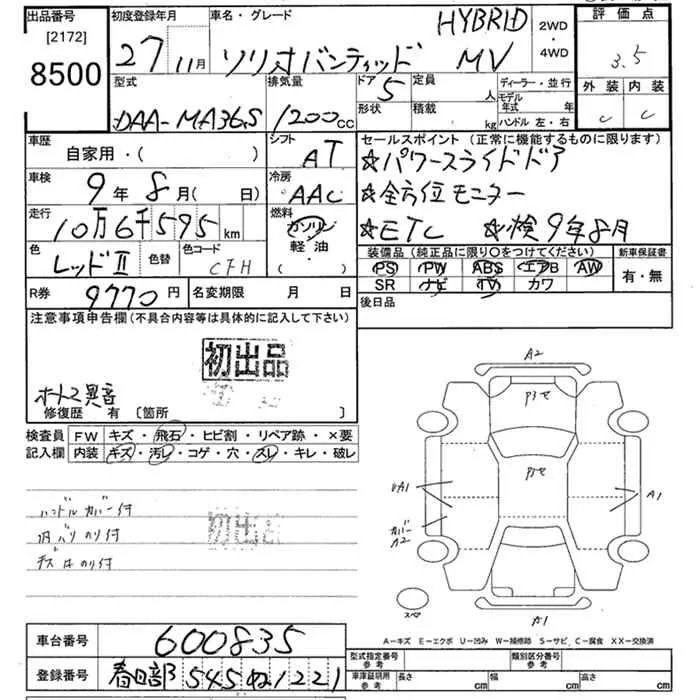 出品番号
[2172]
8500
初度登録年月
27 11月
車名・グレード
ソリオバンディッド
HYBRID
MV
2WD
・
4WD
評価点
3.5
外装 内装
C C
型式
DAA-MA36S
排気量
1200cc
ドア 5
形状
定員 人
積載 kg
ディーラー・並行
モデル年式 年
ハンドル 左・右
車歴
自家用・( )
シフト
AT
セールスポイント (正常に機能するものに限ります)
☆パワースライドドア
☆全方位モニター
☆ETC ☆検9年8月
車検
9年8月( 日)
冷房
AAC
走行
10万6千595km
燃料
ガソリン
軽・油
・( )
色
レッドII
色替
色コード
CFH
装備品 (純正品に限り〇をつけてください)
PS PW ABS エアB AW
SR ナビ TV カワ
新車保証書
有・無
R券
9770円
名変期限 月 日
後日品
注意事項申告欄(不具合内容等は具体的に記入して下さい)
初出品
修復歴 有 〔箇所 〕
検査員記入欄
FW キズ・飛石・ヒビ割・リペア跡・×要
内装 キズ・汚レ・コゲ・穴・スレ・キレ・破レ
ハンドルカバー付
初出品
A2
A1
A1
カバー
A2
A1
スペア
A-キズ E-エクボ U-凹み W-補修跡 S-サビ C-腐食 XX-交換済
車台番号
600835
登録番号
春日部 545 ね 1221
型式指定番号
参考
類別区分番号
参考
車庫証明用
参考
長さ cm
幅 cm
高さ cm